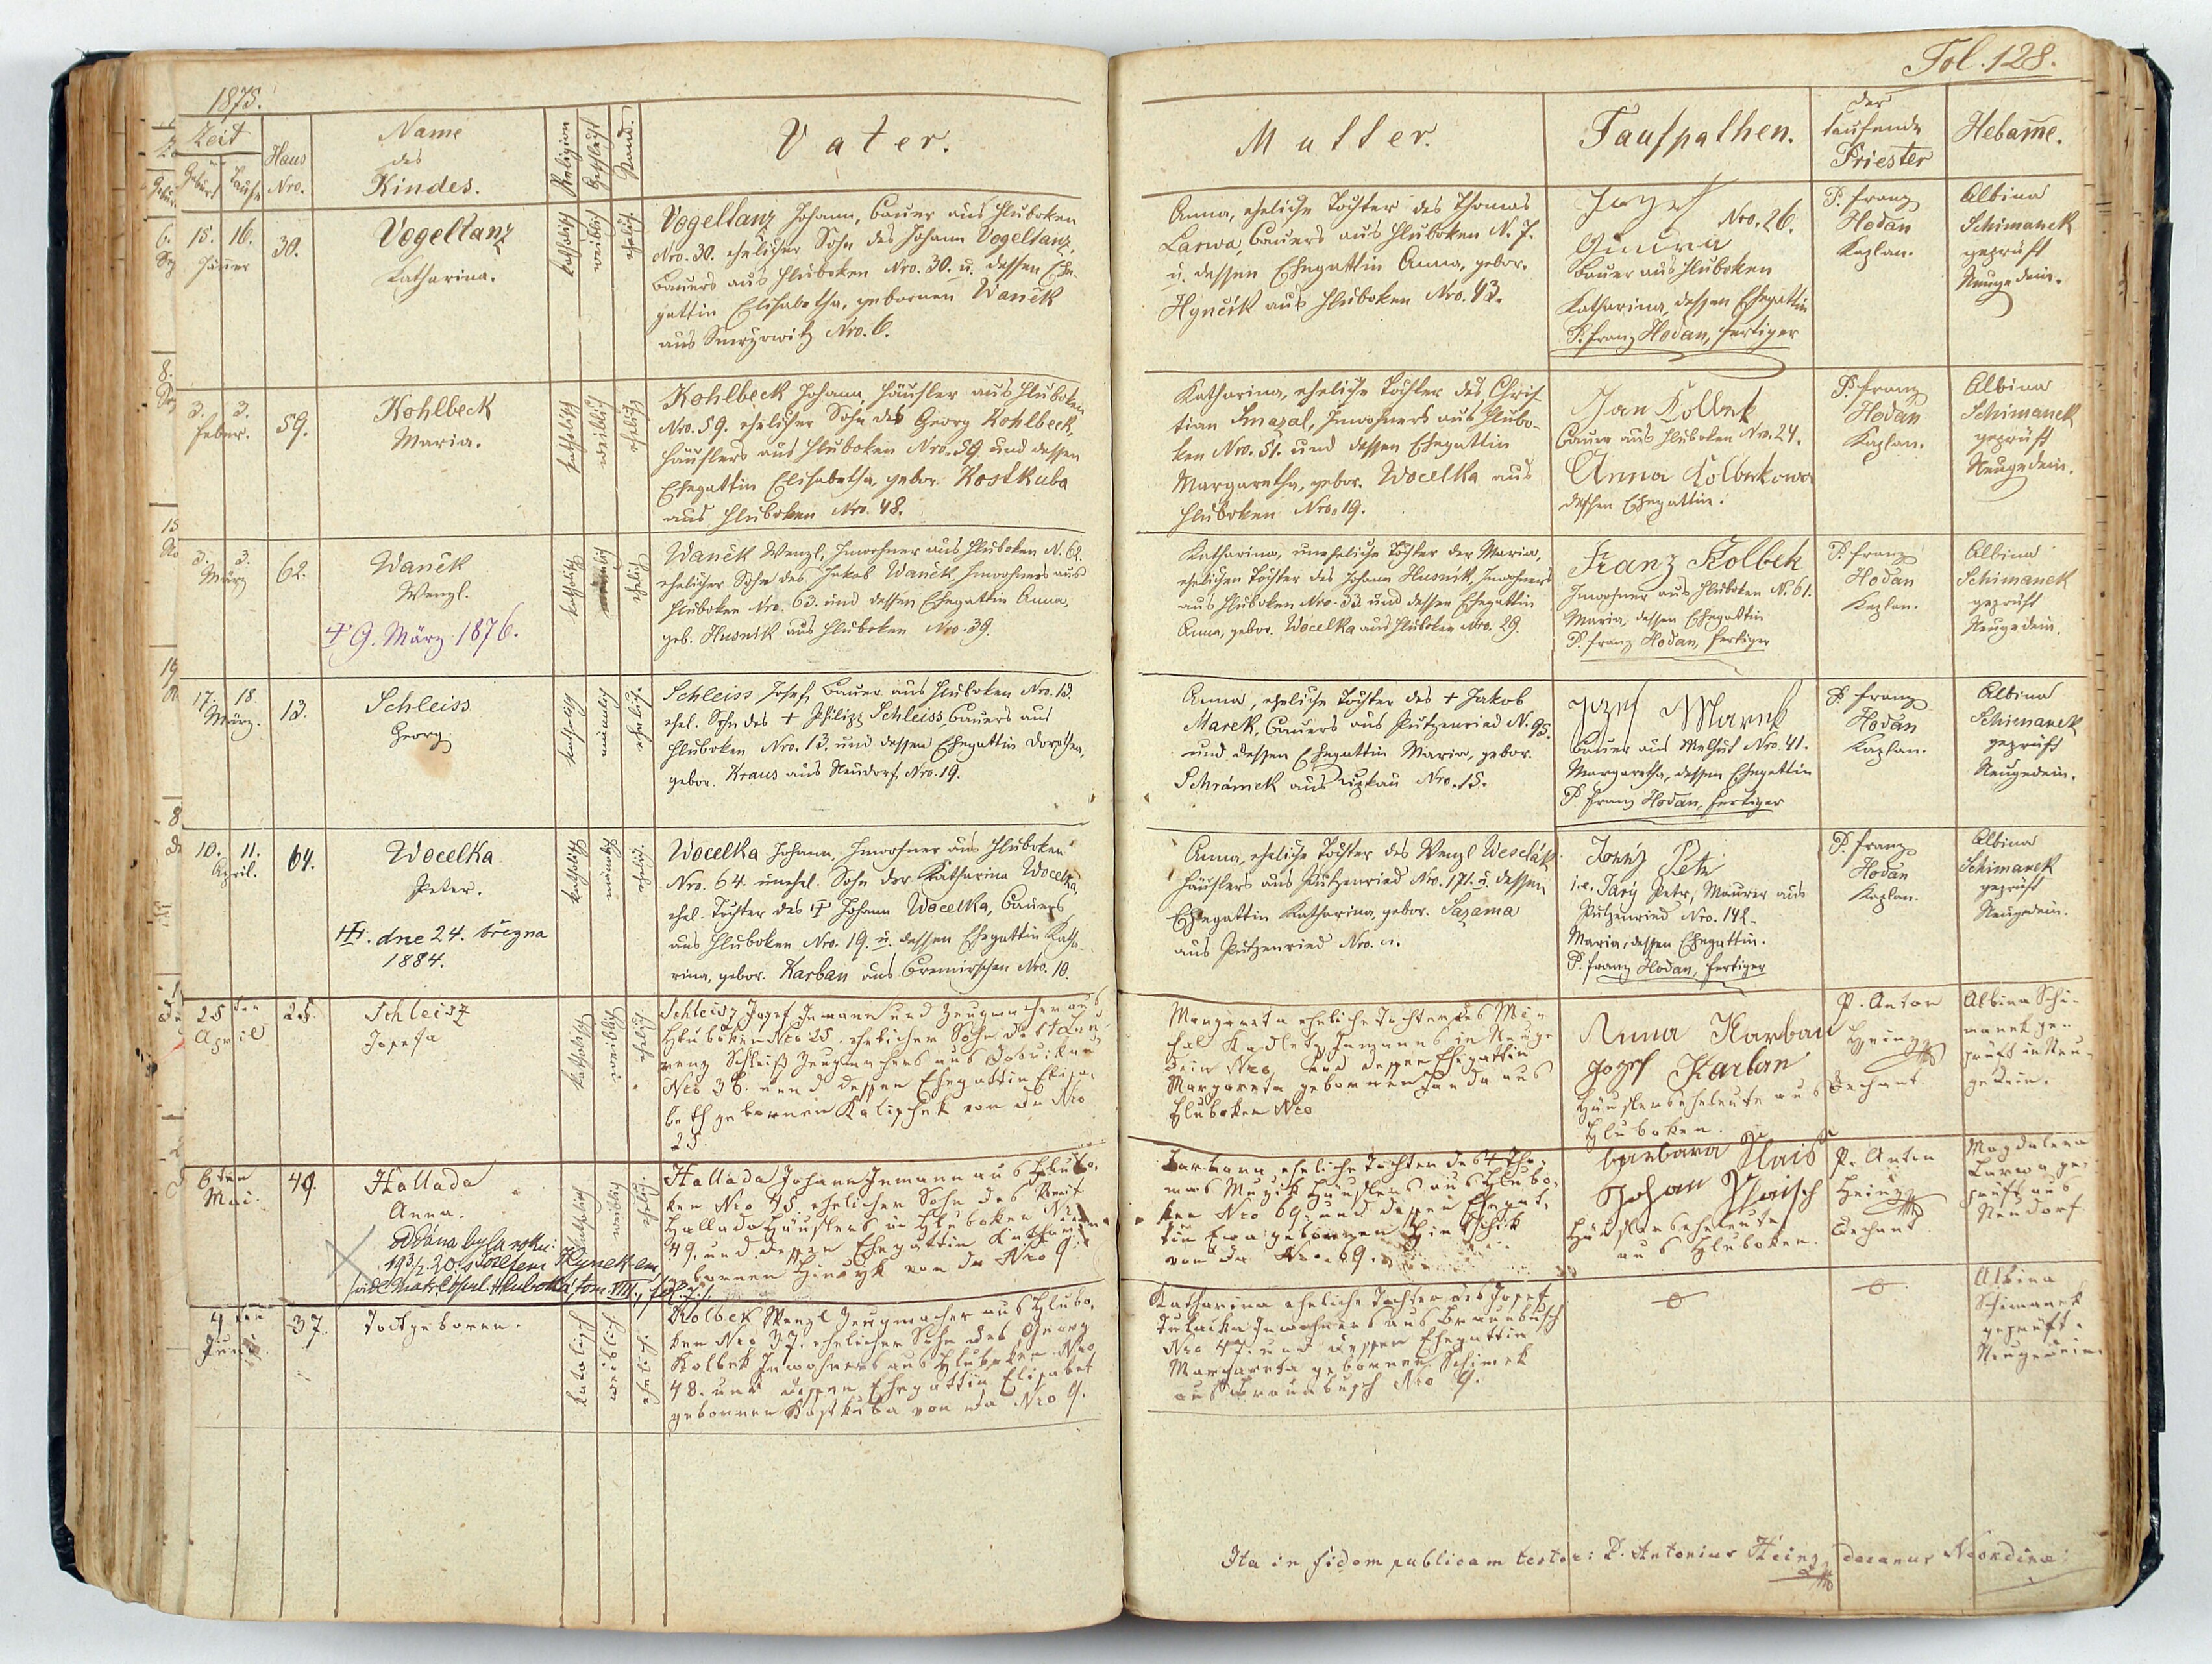 1875.
Fol. 128.
Zeit
Geburt
Taufe
Haus
Nro.
Name
des
Kindes.
Religion
Geschlecht
Stand.
Vater.
Mutter.
Taufpathen.
der
taufende
Priester
Hebamme.
15. 16.
Jänner
30.
Vogeltanz
Katharina.
katholisch
weiblich
ehelich
Vogeltanz Johann, Bauer aus Hluboken
Nro. 30. ehelicher Sohn des Johann Vogeltanz,
Bauers aus Hluboken Nro. 30. u. dessen Ehe-
gattin Elisabetha, gebornen Waněk
aus Smrzowitz Nro. 6.
Anna, eheliche Tochter des Thomas
Larwa, Bauers aus Hluboken N. 7.
u. dessen Ehegattin Anna, gebor.
Hynčik aus Hluboken Nro. 43.
Jozef
Nro. 26.
Bauer aus Hluboken
Katharina, dessen Ehegattin
P. Franz Hodan, fertiger
P. Franz
Hodan
Kaplan.
Albina
Schimanek
geprüft
Neugedein.
3. 3.
Feber.
59.
Kohlbeck
Maria.
katholisch
weiblich
ehelich
Kohlbeck Johann, Häusler aus Hluboken
Nro. 59. ehelicher Sohn des Georg Kohlbeck,
Häuslers aus Hluboken Nro. 59 und dessen
Ehegattin Elisabetha, gebor. Kostkuba
aus Hluboken Nro. 48.
Katharina, eheliche Tochter des Chris-
tian Smazal, Inwohners aus Hlubo-
ken Nro. 51. und dessen Ehegattin
Margaretha, gebor. Wocelka aus
Hluboken Nro. 19.
Jan Kolbek
Bauer aus Hluboken Nro. 24.
Anna Kolbekowa
dessen Ehegattin.
P. Franz
Hodan
Kaplan.
Albina
Schimanek
geprüft
Neugedein.
3. 3.
März
62.
Waněk
Wenzl.
† 9. März 1876.
katholisch
männlich
ehelich
Waněk Wenzl, Inwohner aus Hluboken N. 62.
ehelicher Sohn des Jakob Waněk, Inwohners aus
Hluboken Nro. 63. und dessen Ehegattin Anna,
geb. Husnik aus Hluboken Nro. 39.
Katharina, uneheliche Tochter der Maria,
ehelichen Tochter des Johann Husnik, Inwohners
aus Hluboken Nro. 33 und dessen Ehegattin
Anna, gebor. Wocelka aus Hluboken Nro. 29.
Franz Kolbek
Inwohner aus Hluboken N. 61.
Maria, dessen Ehegattin
P. Franz Hodan, fertiger
P. Franz
Hodan
Kaplan.
Albina
Schimanek
geprüft
Neugedein.
17. 18.
März.
13.
Schleiss
Georg
katholisch
männlich
ehelich.
Schleiss Josef, Bauer aus Hluboken Nro. 13.
ehel. Sohn des † Philipp Schleiss, Bauers aus
Hluboken Nro. 13. und dessen Ehegattin Dorothea,
gebor. Kraus aus Neudorf Nro. 19.
Anna, eheliche Tochter des † Jakob
Marek, Bauers aus Putzenried N. 95.
und dessen Ehegattin Maria, gebor.
Schrámek aus Nro. 15.
Jozef Marek
Bauer aus Nro. 41.
Margaretha, dessen Ehegattin
P. Franz Hodan, fertiger
P. Franz
Hodan
Kaplan.
Albina
Schimanek
geprüft
Neugedein.
10. 11.
April.
64.
Wocelka
Peter.
†. dne 24. března
1884.
katholisch
männlich
ehelich.
Wocelka Johann, Inwohner aus Hluboken
Nro. 64. unehel. Sohn der Katharina Wocelka,
ehel. Tochter des † Johann Wocelka, Bauers
aus Hluboken Nro. 19. u. dessen Ehegattin Katha-
rina, gebor. Karban aus Nro. 10.
Anna, eheliche Tochter des Wenzl Weselák
Häuslers aus Putzenried Nro. 171. u. dessen
Ehegattin Katharina, gebor. Sazama
aus Putzenried Nro.
Petr
i.e. Petr, Maurer aus
Putzenried Nro. 142.
Maria, dessen Ehegattin.
P. Franz Hodan, fertiger
P. Franz
Hodan
Kaplan.
Albina
Schimanek
geprüft
Neugedein.
25 ten
April
25.
Schleisz
Josefa
katholisch
weiblich
ehelich
Schleisz Josef Inmann und Zeugmacher aus
Hluboken Nro 25. ehelicher Sohn des
Schleiß Zeugmachers aus
Nro 36. und dessen Ehegattin Elisa-
beth gebornen Kalischek von da Nro
25.
Margareta eheliche Tochter des Mi-
chal Kadletz Inmanns in Neuge-
dein Nro und dessen Ehegattin
Margareta gebornen Janda aus
Hluboken Nro
Anna Karban
Jozef Karban
Häuslerseheleute aus
Hluboken.
P. Anton
Heinz
Dechant
Albina Schi-
manek ge-
prüft in Neu-
gedein.
6 ten
Mai.
49.
Hallada
Anna.
oddána byla roku
katholisch
weiblich
ehelig.
Hallada Johann Inmann aus Hlubo-
ken Nro 45. ehelicher Sohn des Veit
Hallada Häuslers in Hluboken Nro
49. und dessen Ehegattin Katharina
bornen Hinczyk von da Nro 9
Barbara eheliche Tochter des † Tho-
mas Muzik Häuslers aus Hlubo-
ken Nro 69. und dessen Ehegat-
tin Ewa gebornen Hintschik
von da Nro. 69.
barbara Plais
Johan Plaisch
Häuslerseheleute
aus Hluboken.
P. Anton
Heinz
Dechant
Magdalena
Larwa ge-
prüft aus
Neudorf
4 ten
Juni
37.
Todtgeboren.
katolisch
weiblich
ehelich.
Kolbek Wenzl Zeugmacher aus Hlubo-
ken Nro 37. ehelicher Sohn des Georg
Kolbek Inwohners aus Hluboken Nro
48. und dessen Ehegattin Elisabet
gebornen Kostkuba von da Nro 9.
Katharina eheliche Tochter des Josef
Inwohners aus Braunbusch
Nro 47. und dessen Ehegattin
Margareta gebornen Schimek
aus Braunbusch Nro 9.
Albina
Schimanek
geprüft.
Neugedein.
Ita in fidem publicam testor: P. Antonius Heinz decanus Neordinae: